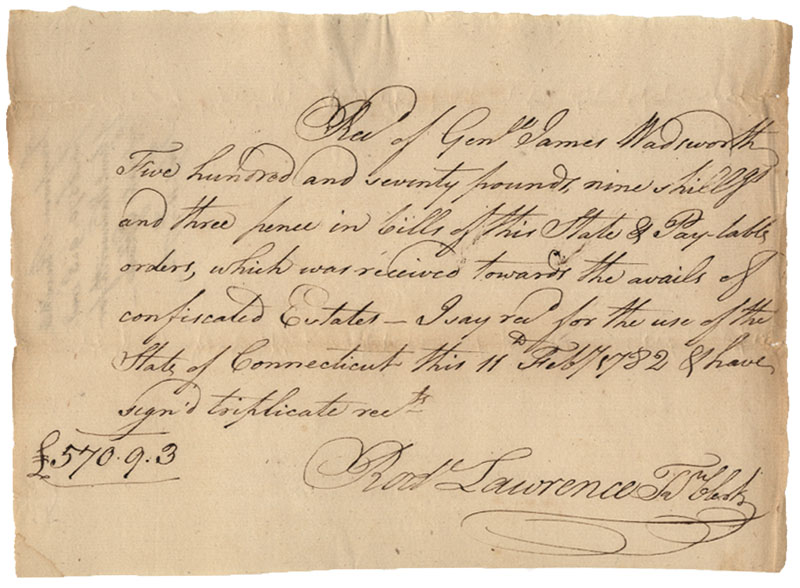 Recd of Genll James Wadsworth
Five hundred and seventy pounds, nine shillgs
and three pence in bills of this State & Pay-table
orders, which was received towards the avails of
confiscated Estates — I say recd for the use of the
State of Connecticut this 11th Feby 1782 & have
sign'd triplicate rects
£570.9.3
Lawrence Clerk